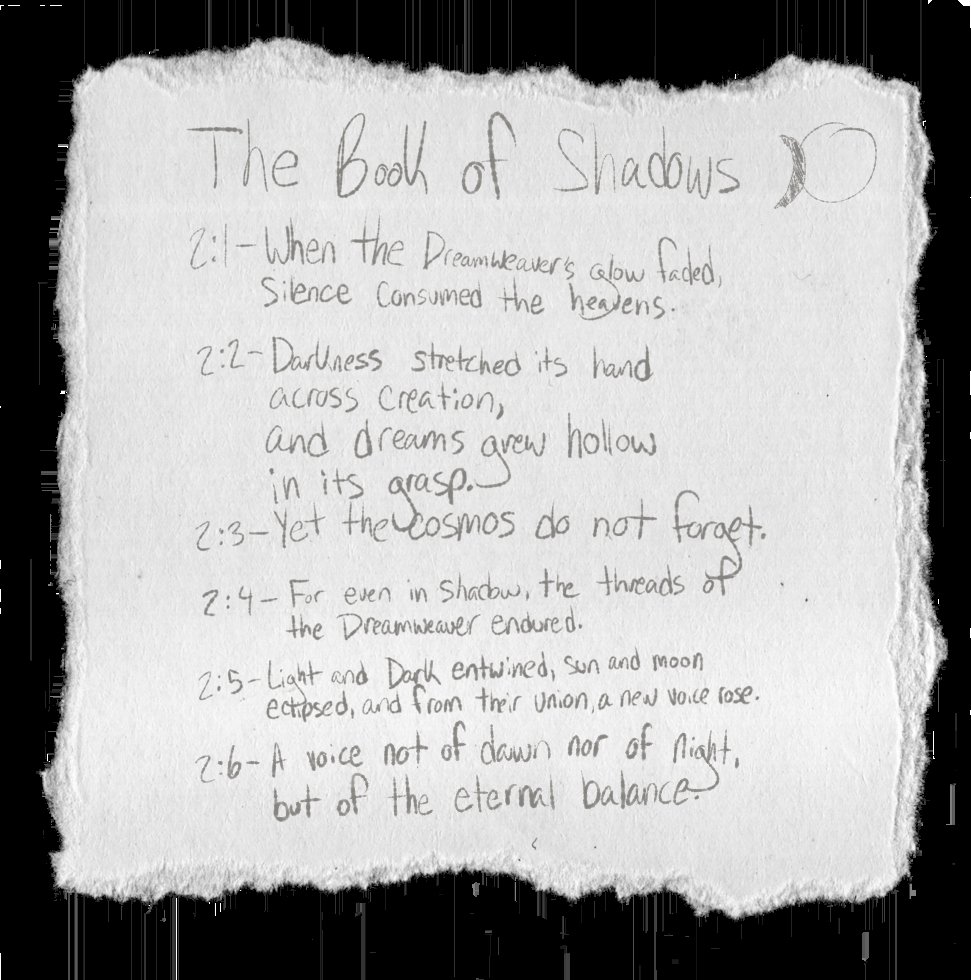 The Book of Shadows
2:1- When the Dreamweaver's glow faded,
Silence Consumed the heavens.
2:2- Darkness stretched its hand
across creation,
and dreams grew hollow
in its grasp.
2:3- Yet the cosmos do not forget.
2:4- For even in Shadow, the threads of
the Dreamweaver endured.
2:5- Light and Dark entwined, sun and moon
eclipsed, and from their union, a new voice rose.
2:6- A voice not of dawn nor of night,
but of the eternal balance.